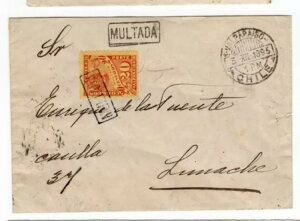 MULTADA
VALPARAISO
1895
CHILE
Sr
Enrique de la Fuente
casilla
37
Limache